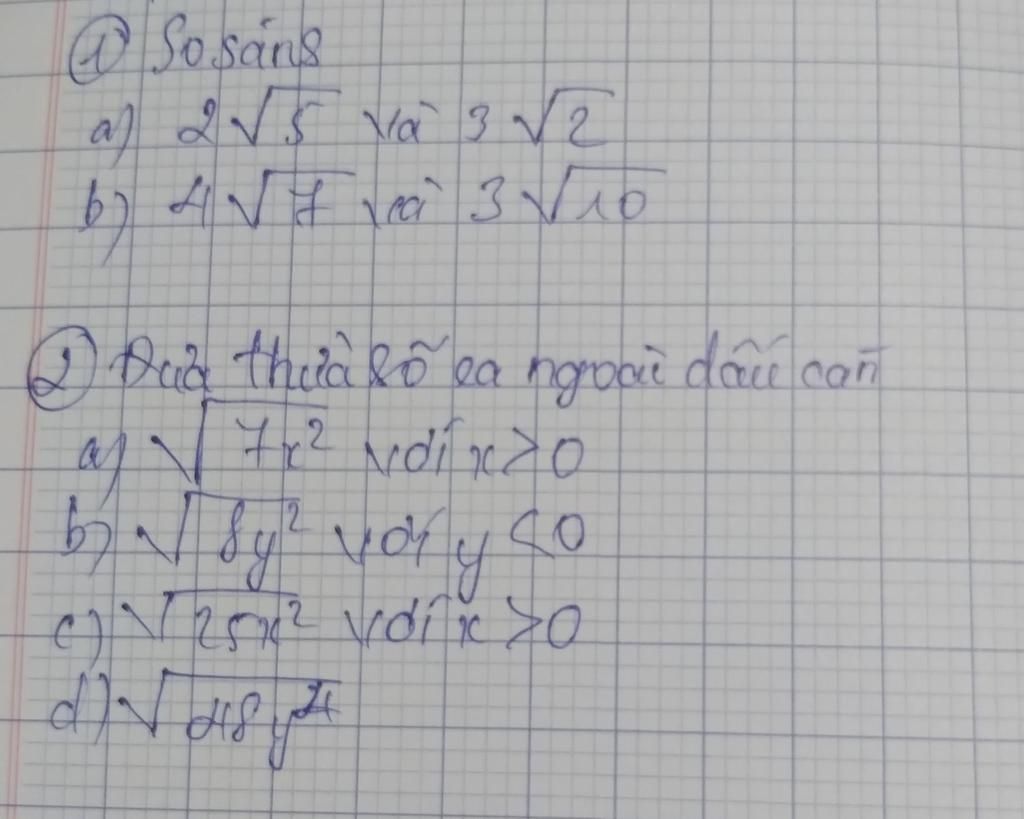 ① So sánh
a) 2√5 và 3√2
b) 4√7 và 3√10
② Đưa thừa số ra ngoài dấu căn
a) √7x² với x > 0
b) √8y² với y < 0
c) √25x² với x > 0
d) √48y⁴